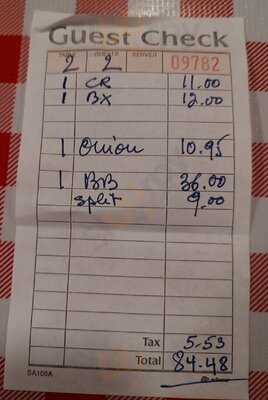 Guest Check
TABLE GUESTS SERVER
2 2 09782
1 CR 11.00
1 BX 12.00
1 Onion 10.95
1 BB 36.00
split 9.00
Tax 5.53
Total 84.48